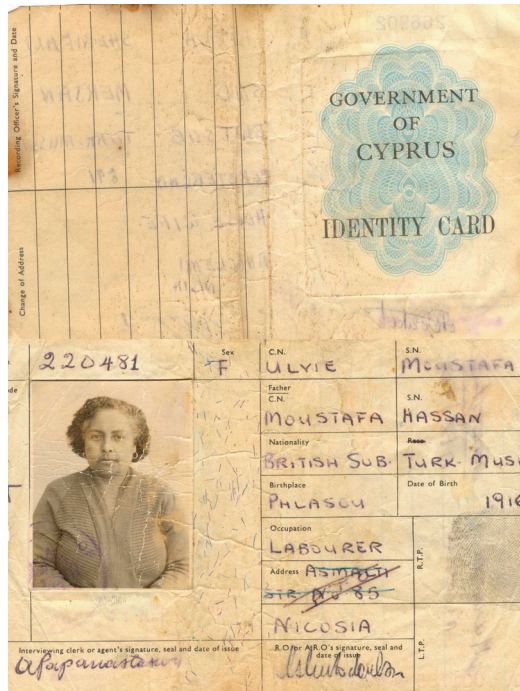 Recording Officer's Signature and Date
Change of Address
GOVERNMENT
OF
CYPRUS
IDENTITY CARD
220481
Sex
F
C.N.
ULVIE
S.N.
MOUSTAFA
Father
C.N.
MOUSTAFA
S.N.
HASSAN
Nationality
BRITISH SUB.
Race
TURK. MUSL
Birthplace
PHLASOU
Date of Birth
1916
Occupation
LABOURER
Address ASMALTI
STR. No 85
NICOSIA
R.T.P.
L.T.P.
Interviewing clerk or agent's signature, seal and date of issue
R.O. or A.R.O's signature, seal and
date of issue